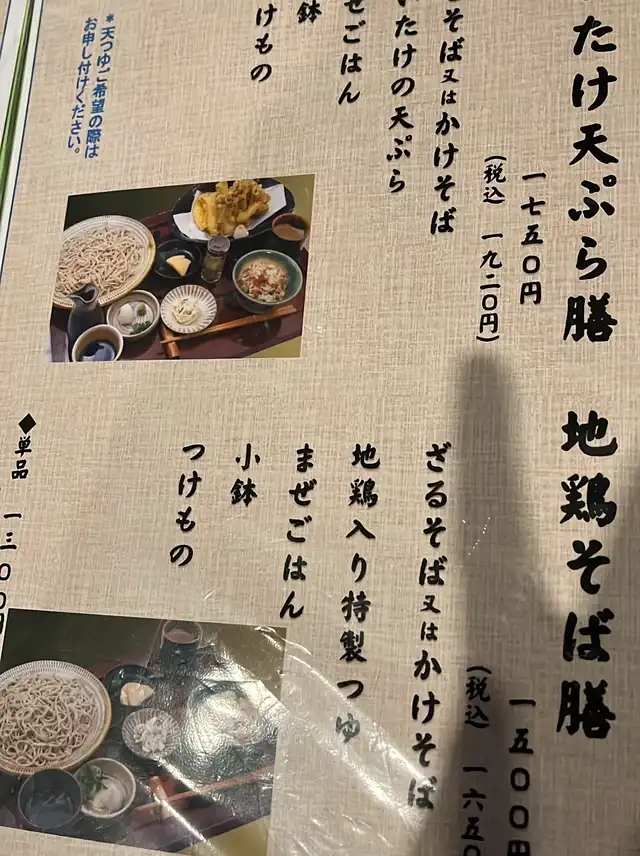 たけ天ぷら膳
一七五〇円
(税込 一九二〇円)
そば又はかけそば
いたけの天ぷら
ぜごはん
鉢
けもの
*天つゆご希望の際は
お申し付けください。
地鶏そば膳
一五〇〇円
(税込 一六五〇
ざるそば又はかけそば
地鶏入り特製つゆ
まぜごはん
小鉢
つけもの
◆単品 一三〇〇円